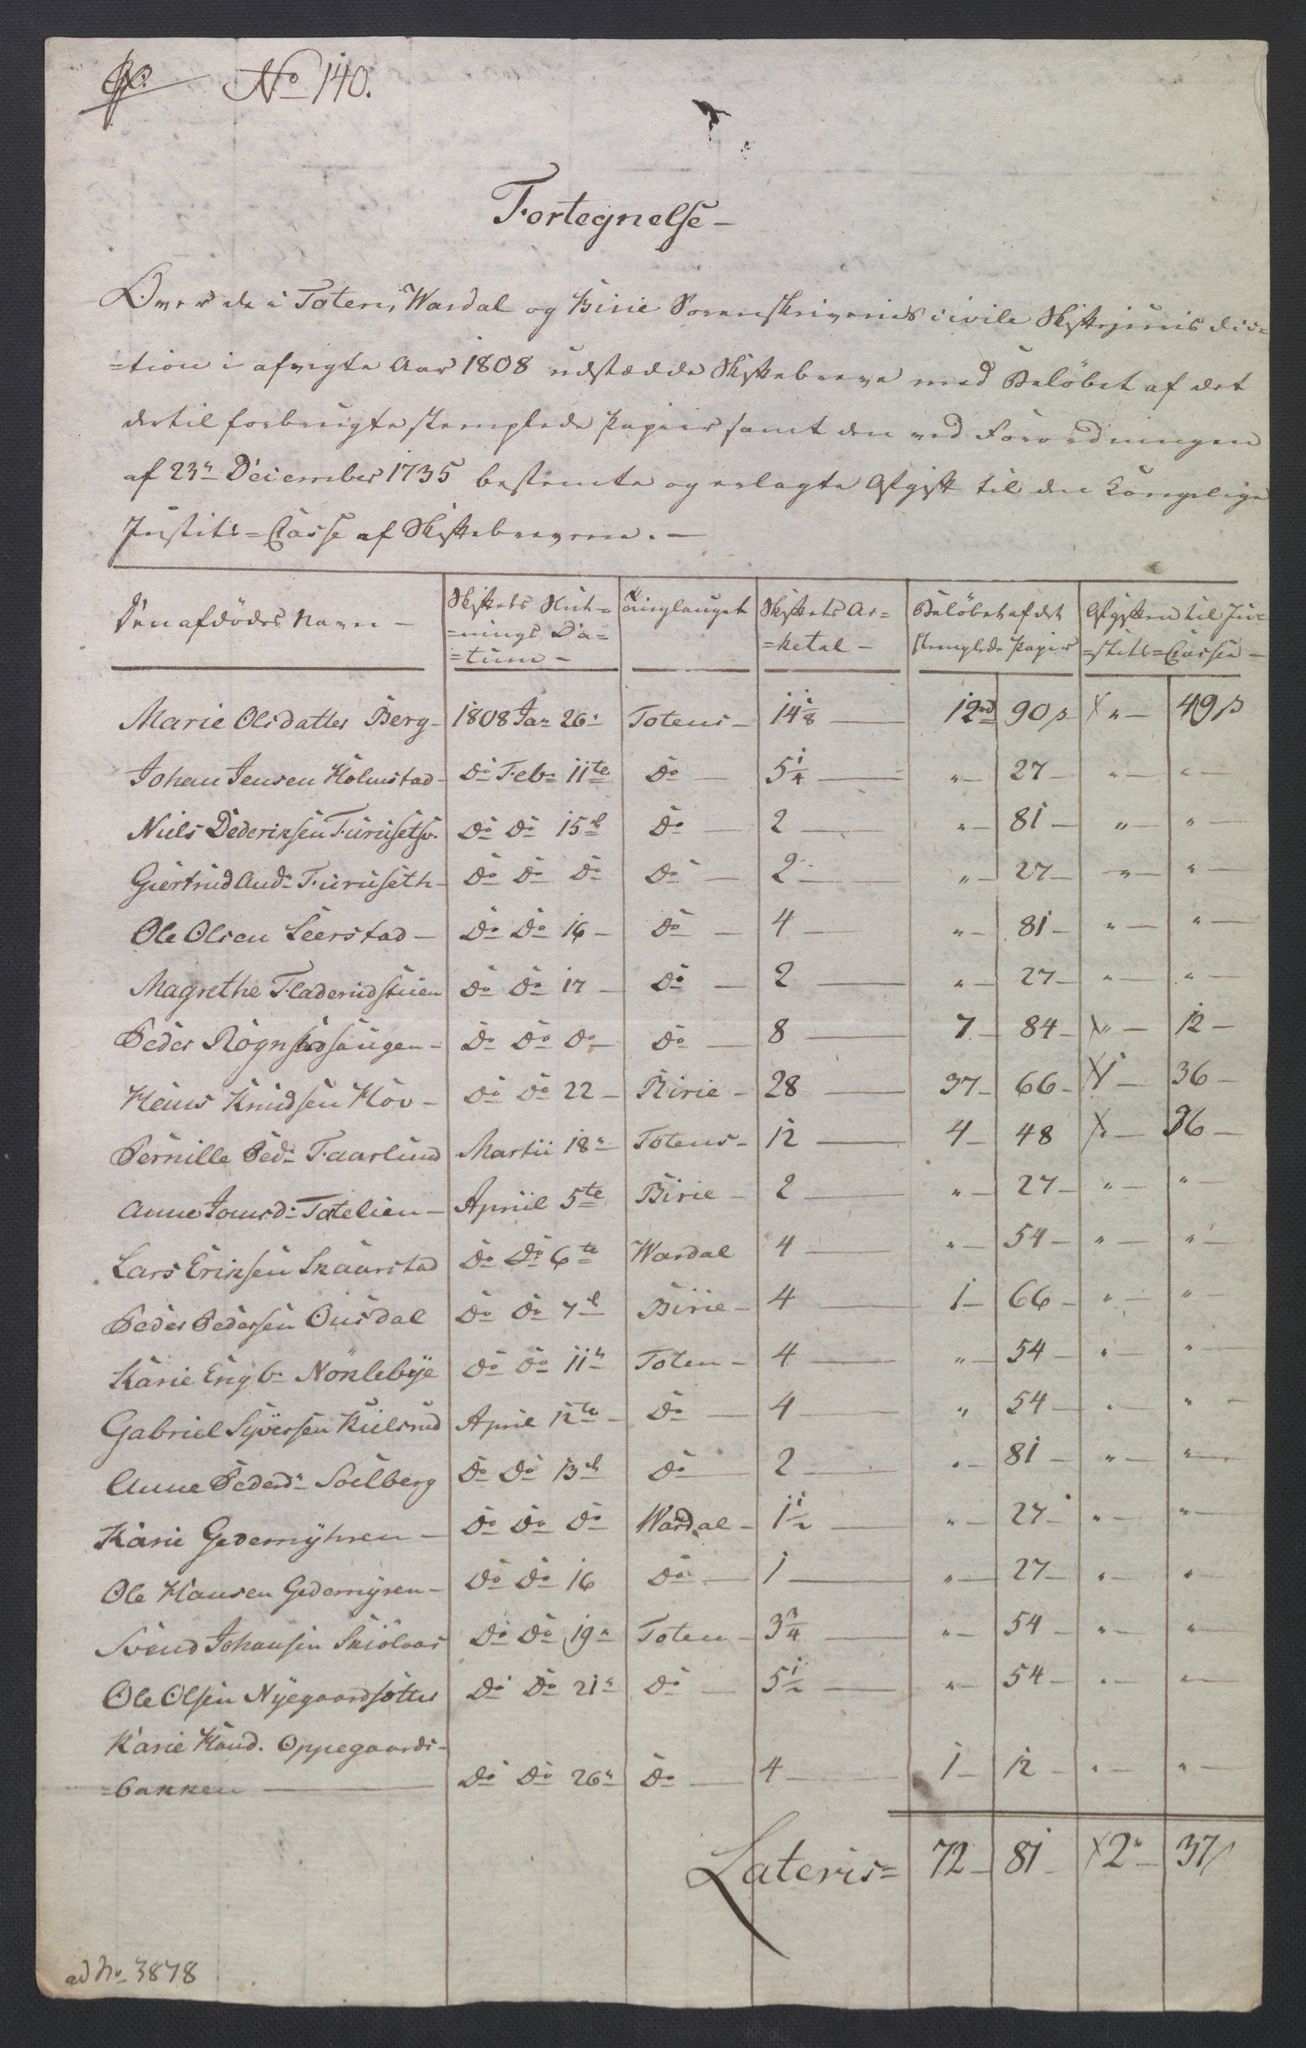 No 140.
Fortegnelse –
Over de i Totens, Wardal og Birie Sorenskriveries civile Skiftejurisdic=
=tion i afvigte Aar 1808 udstædde Skiftebreve med Beløbet af det
dertil forbrugte stemplede Papiir samt den ved Forordningen
af 23de December 1735 bestemte og erlagte Afgift til den Kongelige
Justits=Casse af Skiftebrevene. –
Den afdødes Navn – Skiftets Slut= Tinglauget Skiftets Ar= Beløbet af det Afgiften til Ju=
=nings Da= =ketal – stemplede Papiir =stits=Cassen –
=tum –
Marie Olsdatter Berg – 1808 Jan 26 Totens – 14 1/8 — 12rd 90ß " — 49ß
Johan Jensen Holmstad – Do Feb 11te Do — 5 1/4 — " 27 " "
Niels Dideriksen Furusetsv. Do Do 15d Do — 2 — " 81 " "
Giertrud And: Furuseth – Do Do Do Do — 2 — " 27 " "
Ole Olsen Seerstad – Do Do 16 – Do — 4 — " 81 " "
Magrethe Fladerudstuen Do Do 17 – Do — 2 — " 27 " "
Peder Rognstadsaugen – Do Do Do Do — 8 — 7 84 " 12
Hans Knudsen Hov – Do Do 22 – Birie – 28 — 37 66 1 36
Pernille Ped: Faarlund Martii 18 Totens – 12 — 4 48 " 36
Anne Jonsd: Totelien – Apriil 5te Birie – 2 — " 27 " "
Lars Eriksen Skaarstad Do Do 6te Wardal 4 — " 54 " "
Peder Pedersen Ousdal Do Do 7d Birie – 4 — 1 66 " "
Karie Engb: Nøklebye Do Do 11 Toten – 4 — " 54 " "
Gabriel Syversen Kielsrud April 12te – Do — 4 — " 54 " "
Anne Pedersd: Soelberg Do Do 13d Do — 2 — " 81 " "
Karie Gedemyhren – Do Do Do Wardal – 1 1/2 — " 27 " "
Ole Hansen Gedemyren – Do Do 16 Do — 1 — " 27 " "
Svend Johansen Skiølaas Do Do 19 Toten – 3 3/4 — " 54 " "
Ole Olsen Nyegaardsøtter Do Do 21 Do — 5 1/2 — " 54 " "
Karie Hansd. Oppegaards=
=bakken — Do Do 26 Do — 4 — 1 12 " "
Lateris = 72 81 2 37ß
ad No 3878